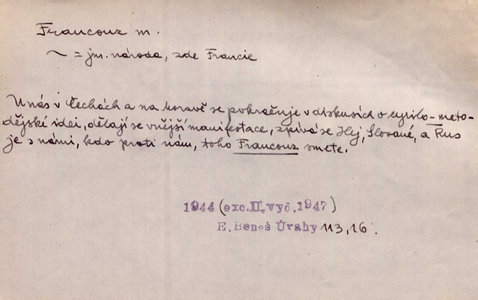 Francouz m.
~ = jm. národa, zde Francie
U nás v Čechách a na Moravě se pokračuje v diskusích o cyrilo-meto-
dějské idei, dělají se vnější manifestace, zpívá se Hej, Slované, a Rus
je s námi, kdo proti nám, toho Francouz smete.
1944 (exc.II.vyd.1947)
E. Beneš Úvahy 113,16.